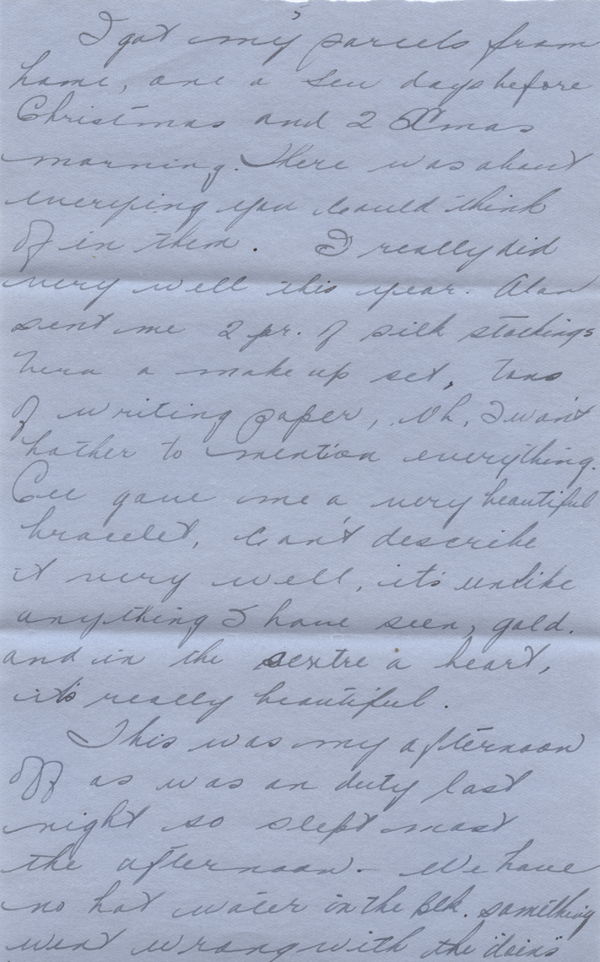 I got my parcels from
home, one a few days before
Christmas and 2 Xmas
morning. There was about
everything you could think
of in them. I really did
very well this year. Alan
sent me 2 pr. of silk stockings
Vera a make up set, tons
of writing paper, oh, I won't
bother to mention everything.
Cec gave me a very beautiful
bracelet, can't describe
it very well, it's unlike
anything I have seen, gold.
and in the sentre a heart,
it's really beautiful.
This was my afternoon
off as was on duty last
night so slept most
the afternoon - We have
no hot water in the blk. something
went wrong with the